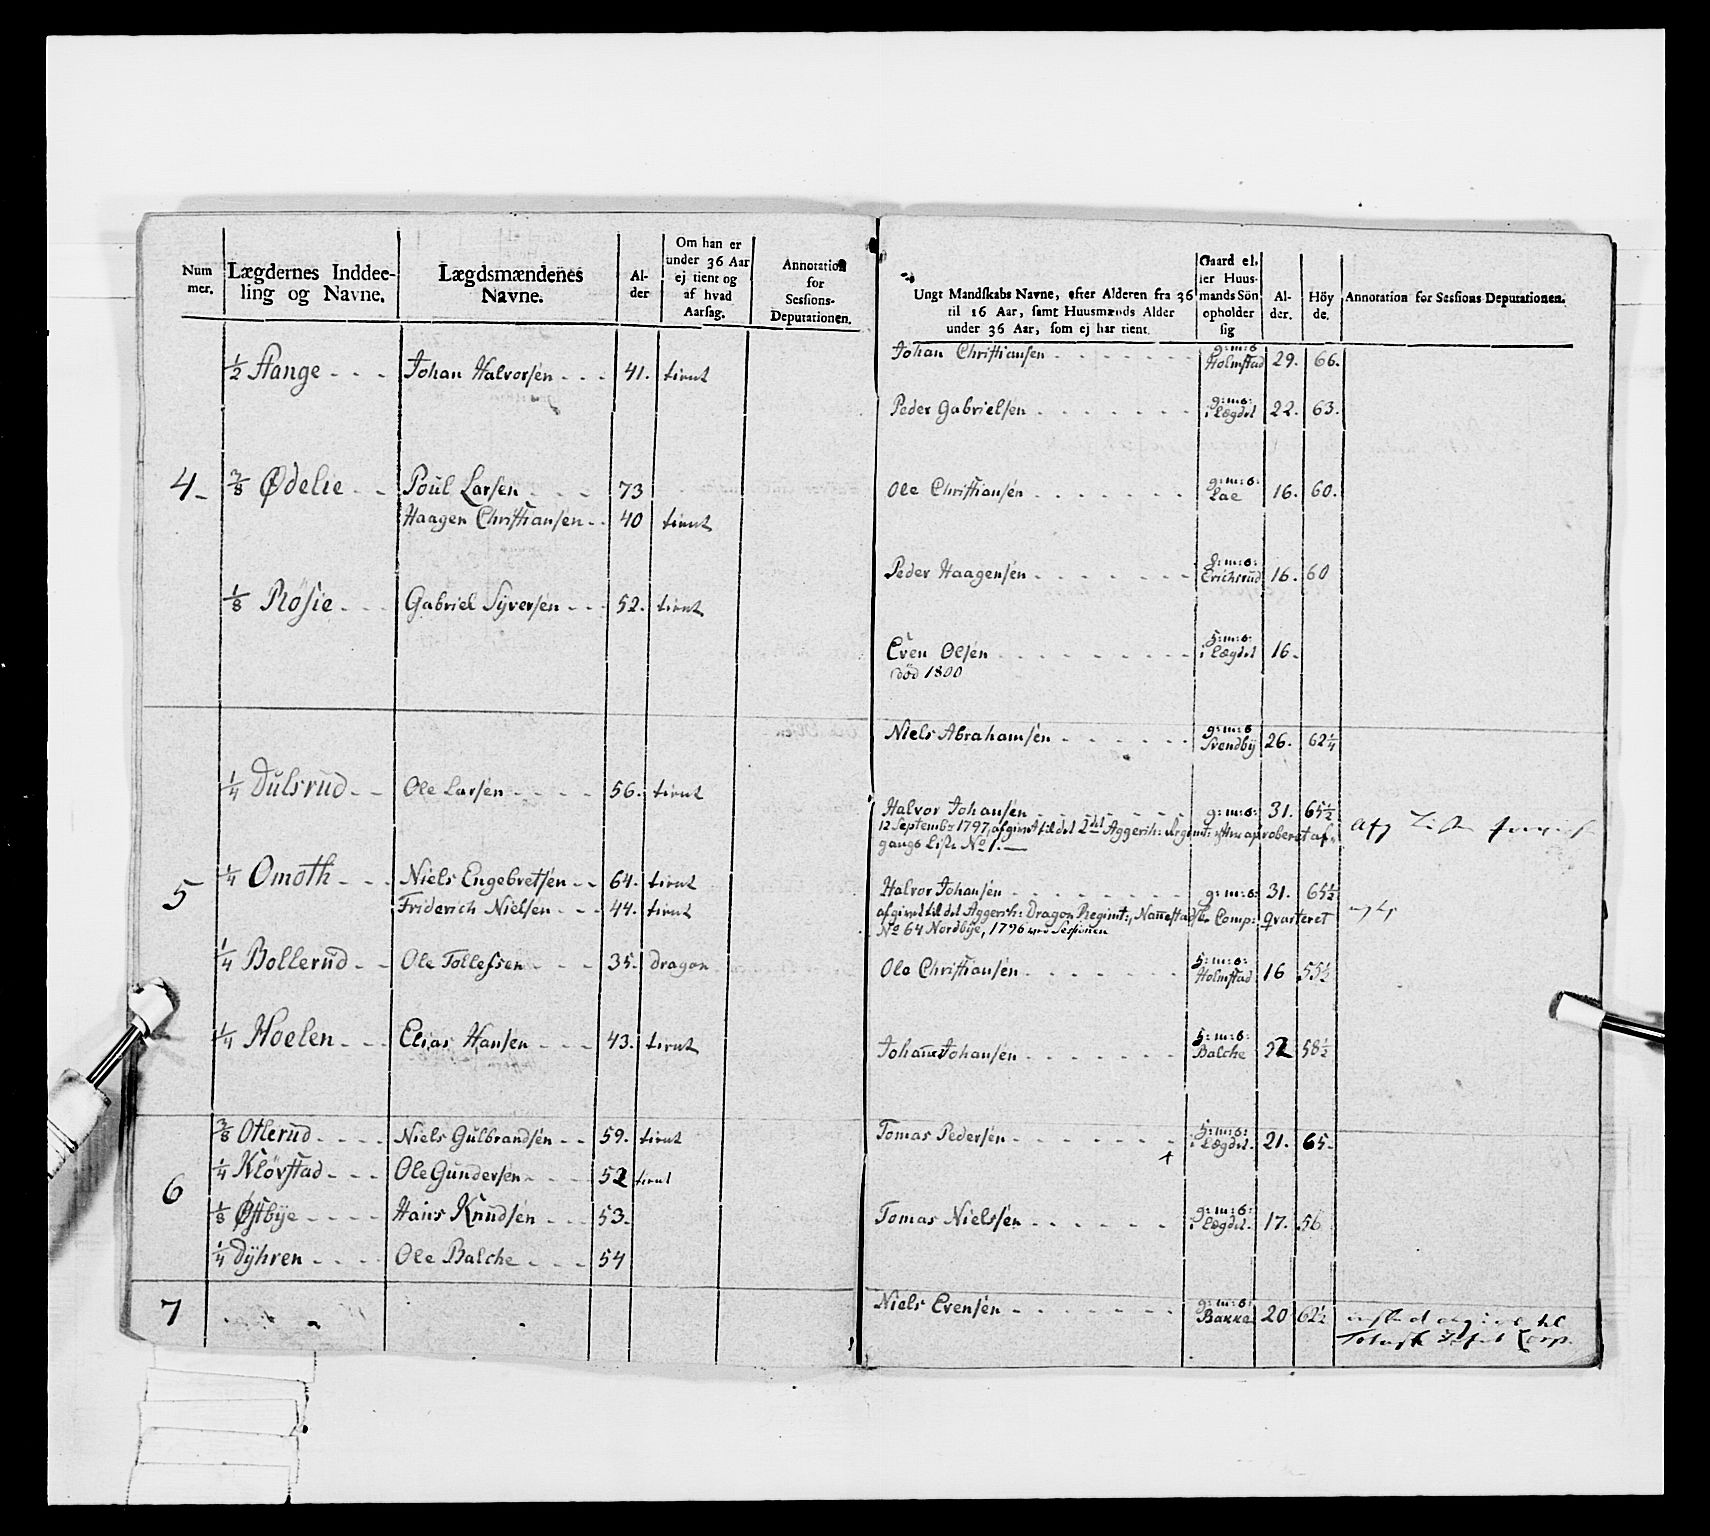 Num
mer.
Lægdernes Inddee-
ling og Navne.
Lægdsmændenes
Navne.
Al-
der
Om han er
under 36 Aar
ej tient og
af hvad
Aarsag.
Annotation
for
Sessions-
Deputationen.
½ Stange - - - Johan Halvorsen - - - 41. tient
4 - ⅜ Ødelie - - Poul Larsen - - - 73
Haagen Christiansen - - 40 tient
⅛ Rösie - - - Gabriel Syversen - - - 52. tient
5
¼ Dulsrud - - Ole Larsen - - - - 56. tient
¼ Omoth - - - Niels Engebretsen - - 64. tient
Friderich Nielsen - - - 44. tient
¼ Bollerud - - Ole Tollefsen - - - 35. Dragon
¼ Hoelen - - - Elias Hansen - - - 43. tient
6
⅜ Otterud - - - - Niels Gulbrandsen - - 59. tient
¼ Klövstad - - - Ole Gundersen - - - - 52 tient
⅛ Østbye - - - - Hans Knudsen - - - 53.
¼ Dyhren - - - - Ole Balche - - - 54
7
Ungt Mandskabs Navne, efter Alderen fra 36
til 16 Aar, samt Huusmænds Alder
under 36 Aar, som ej har tient.
Gaard el.
ler Huus-
mands Sön
opholder
sig
Al-
der.
Höy
de.
Annotation for Sessions Deputationen.
Johan Christiansen - - - - - - - g:m:s: Holmstad 29. 66.
Peder Gabrielsen - - - - - - - g:m:s: i Lægdet 22. 63.
Ole Christiansen - - - - - - - g:m:s: Lae 16. 60.
Peder Haagensen - - - - - - - g:m:s: Erichsrud 16. 60
Even Olsen - - - - - - - - - s:m:s: i Lægdet 16.
död 1800
Niels Abrahamsen - - - - - - g:m:s Svendby 26. 62¼
Halvor Johansen - - - - - - - g:m:s: 31. 65½
12 Septembr 1797, afgivet til det 2det Aggersh: Regimt: efter approberet af-
gangs Liste No 1. —
Halvor Johansen - - - - - - - g:m:s: 31. 65½
afgivet til det Aggersh: Dragon Regimt:, Nannestadsk. Comp: Qvarteret
No 64 Nordbye, 1796 ved Sessionen
Ole Christiansen - - - - - - - s:m:s: Holmstad 16 55½
Johannes Johansen - - - - - - s:m:s: Balche 22 58½
Tomas Pedersen - - - - - - - s:m:s: i Lægdet. 21. 65.
Tomas Nielssen - - - - - - g:m:s: i Lægdet. 17. 56
Niels Evensen - - - - - - - g:m:s: Bakke 20 62½